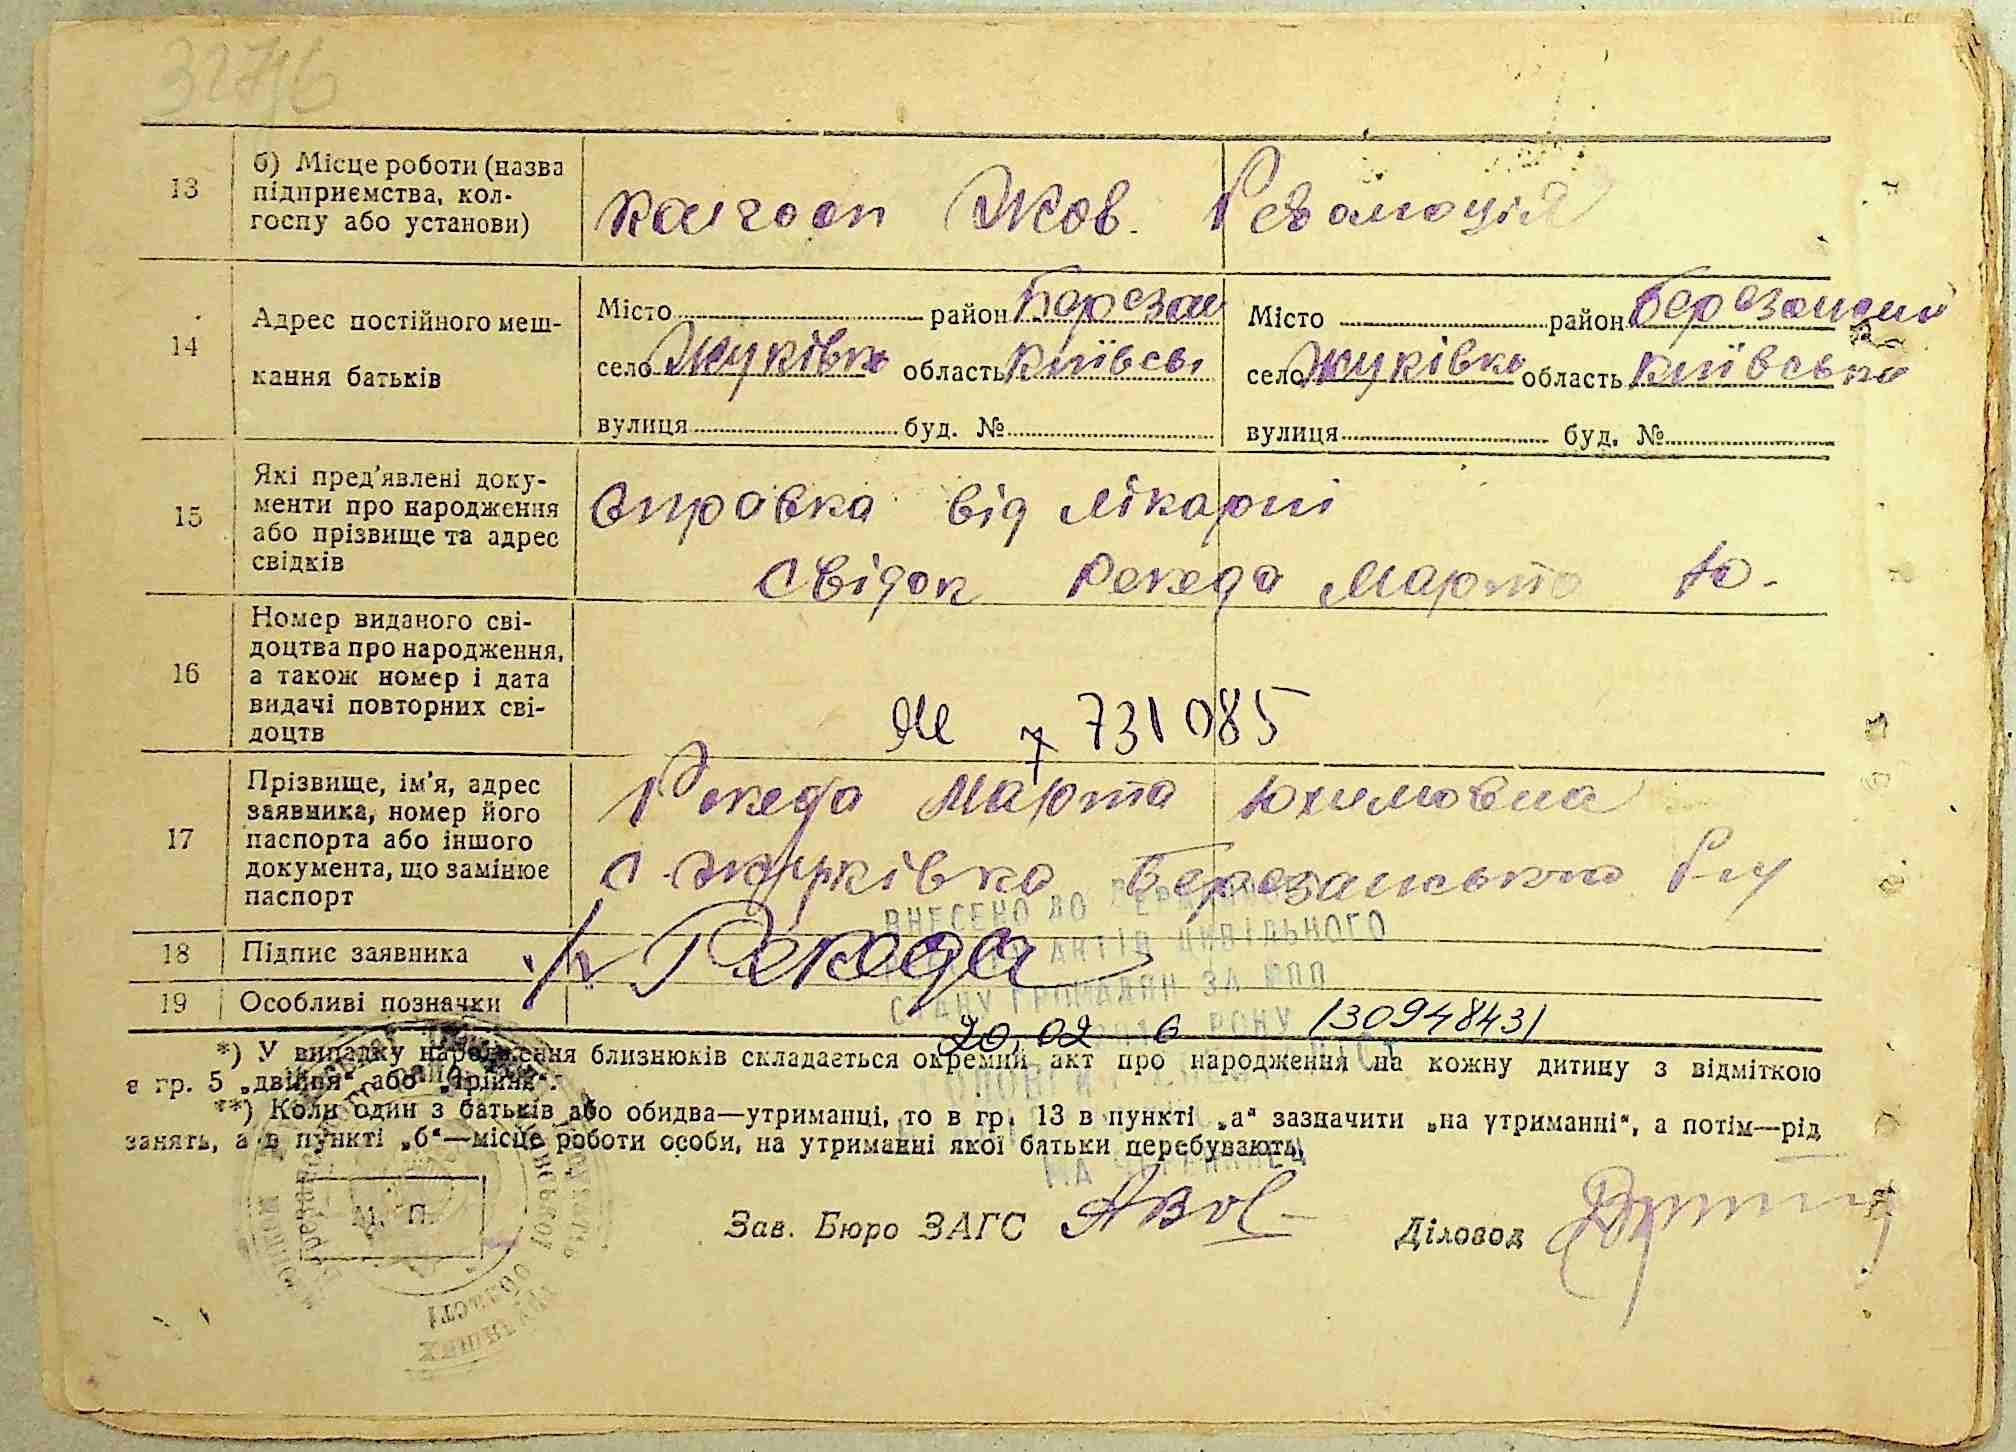 32716
13
б) Місце роботи (назва
підприємства, кол-
госпу або установи)
колгосп Жов. Революція
14
Адрес постійного меш-
кання батьків
Місто район Березан
село Жуківка область Київськ
вулиця буд. №
Місто район Березанський
село Жуківка область Київська
вулиця буд. №
15
Які пред'явлені доку-
менти про народження
або прізвище та адрес
свідків
справка від лікарні
свідок Рекеда Марта Ю.
16
Номер виданого сві-
доцтва про народження,
а також номер і дата
видачі повторних сві-
доцтв
731085
17
Прізвище, ім'я, адрес
заявника, номер його
паспорта або іншого
документа, що замінює
паспорт
Рекеда Марта Юхимовна
с. Жуківка Березанського р-ну
18
Підпис заявника
Рекеда
19
Особливі позначки
ВНЕСЕНО ДО
АКТІВ ЦИВІЛЬНОГО
СТАНУ ГРОМАДЯН ЗА
РОКУ
20.02 /3094843/
*) У випадку народження близнюків складається окремий акт про народження на кожну дитину з відміткою
в гр. 5 „двійня“ або „трійня“.
**) Коли один з батьків або обидва—утриманці, то в гр. 13 в пункті „а“ зазначити „на утриманні“, а потім—рід
занять, а в пункті „б“—місце роботи особи, на утриманні якої батьки перебувають.
М. П.
Зав. Бюро ЗАГС
Діловод